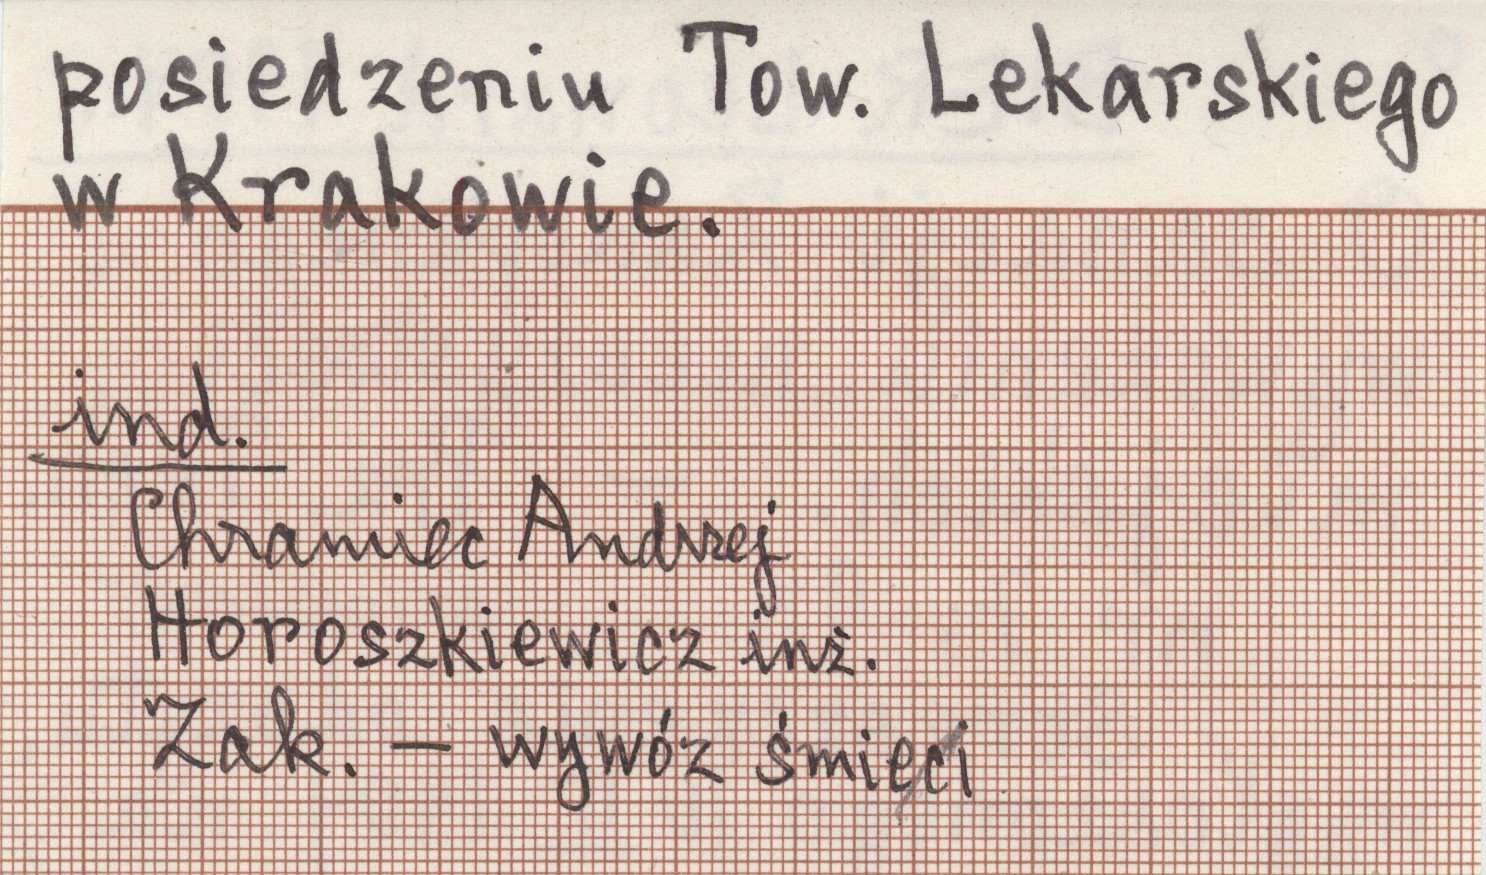 posiedzeniu Tow. Lekarskiego
w Krakowie.
ind.
Chramiec Andrzej
Horoszkiewicz inż.
Zak. – wywóz śmieci